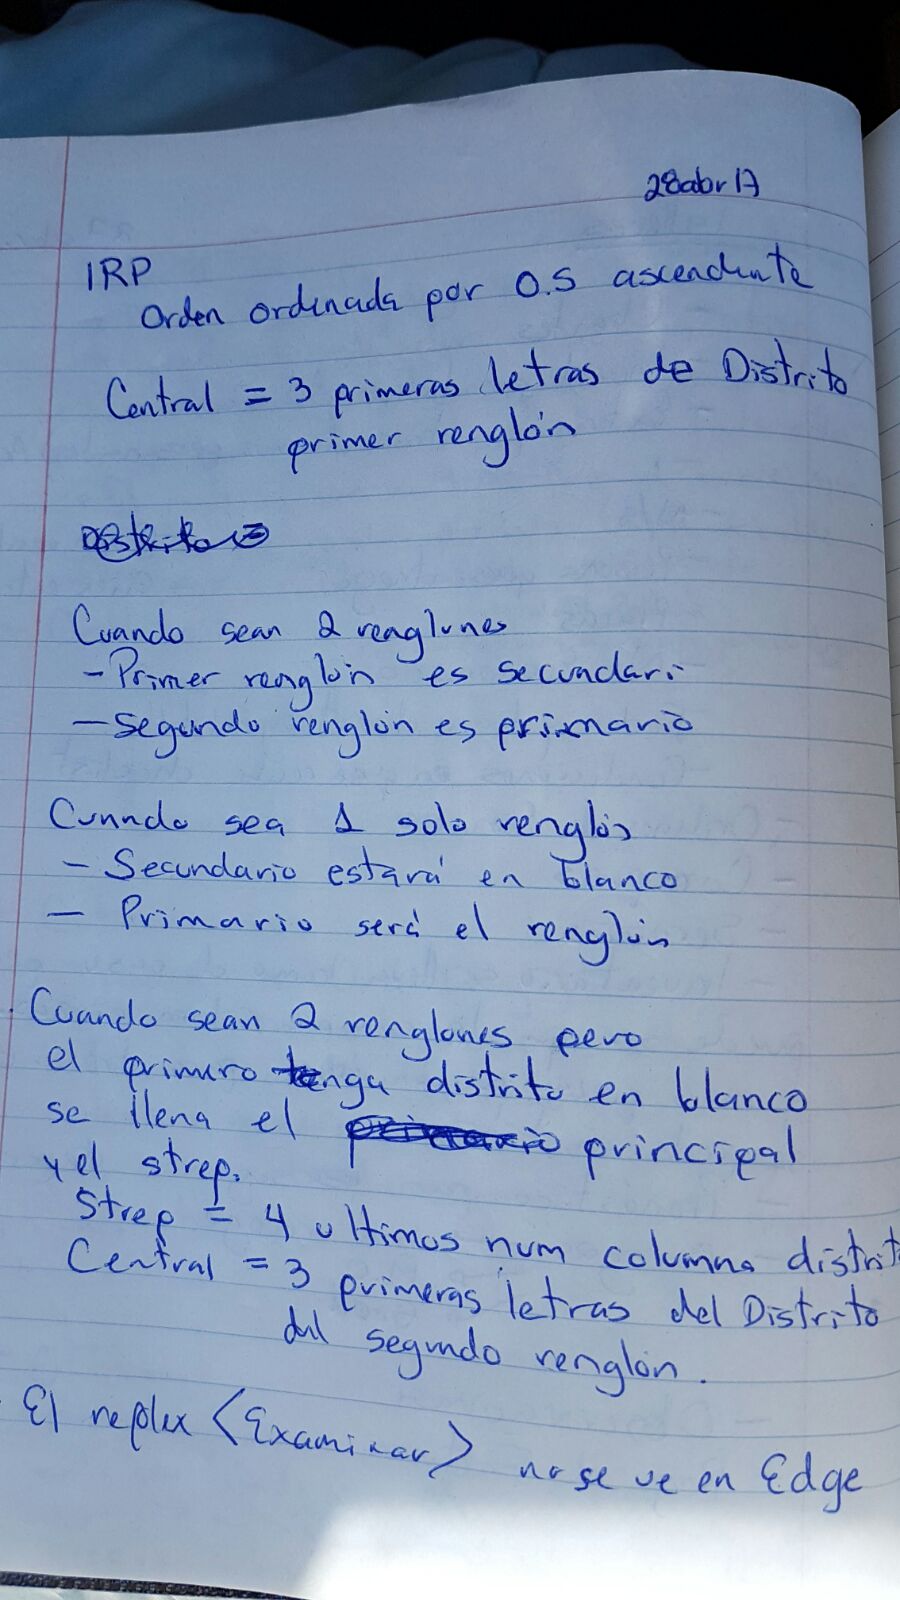 28abr17
IRP
Orden ordenada por O.S ascendente
Central = 3 primeras letras de Distrito
primer renglón
Distrito =
Cuando sean 2 renglones
- Primer renglón es secundari
- Segundo renglón es primario
Cuando sea 1 solo renglón
- Secundario estará en blanco
- Primario será el renglón
Cuando sean 2 renglones pero
el primero tenga distrito en blanco
se llena el principal
y el strep.
Strep = 4 ultimos num columna distrit
Central = 3 primeras letras del Distrito
del segundo renglón.
El <Examinar> no se ve en Edge